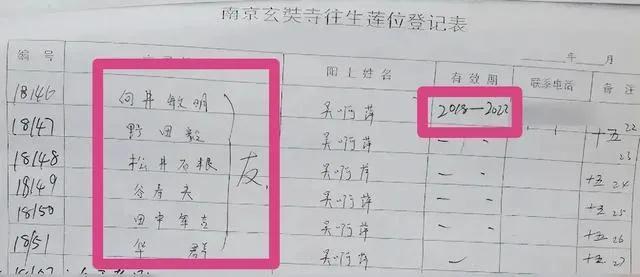 南京玄奘寺往生莲位登记表
年 月
编号 阳上姓名 有效期 联系电话 备注
18146 向井敏明 吴啊萍 2018—2022 十五22
18147 野田毅 吴啊萍 〃 十五23
18148 松井石根 友. 吴啊萍 〃 十五24
18149 谷寿夫 吴啊萍 〃 十五25
18150 田中军吉 吴啊萍 〃 十五26
18151 华群 吴啊萍 十五27